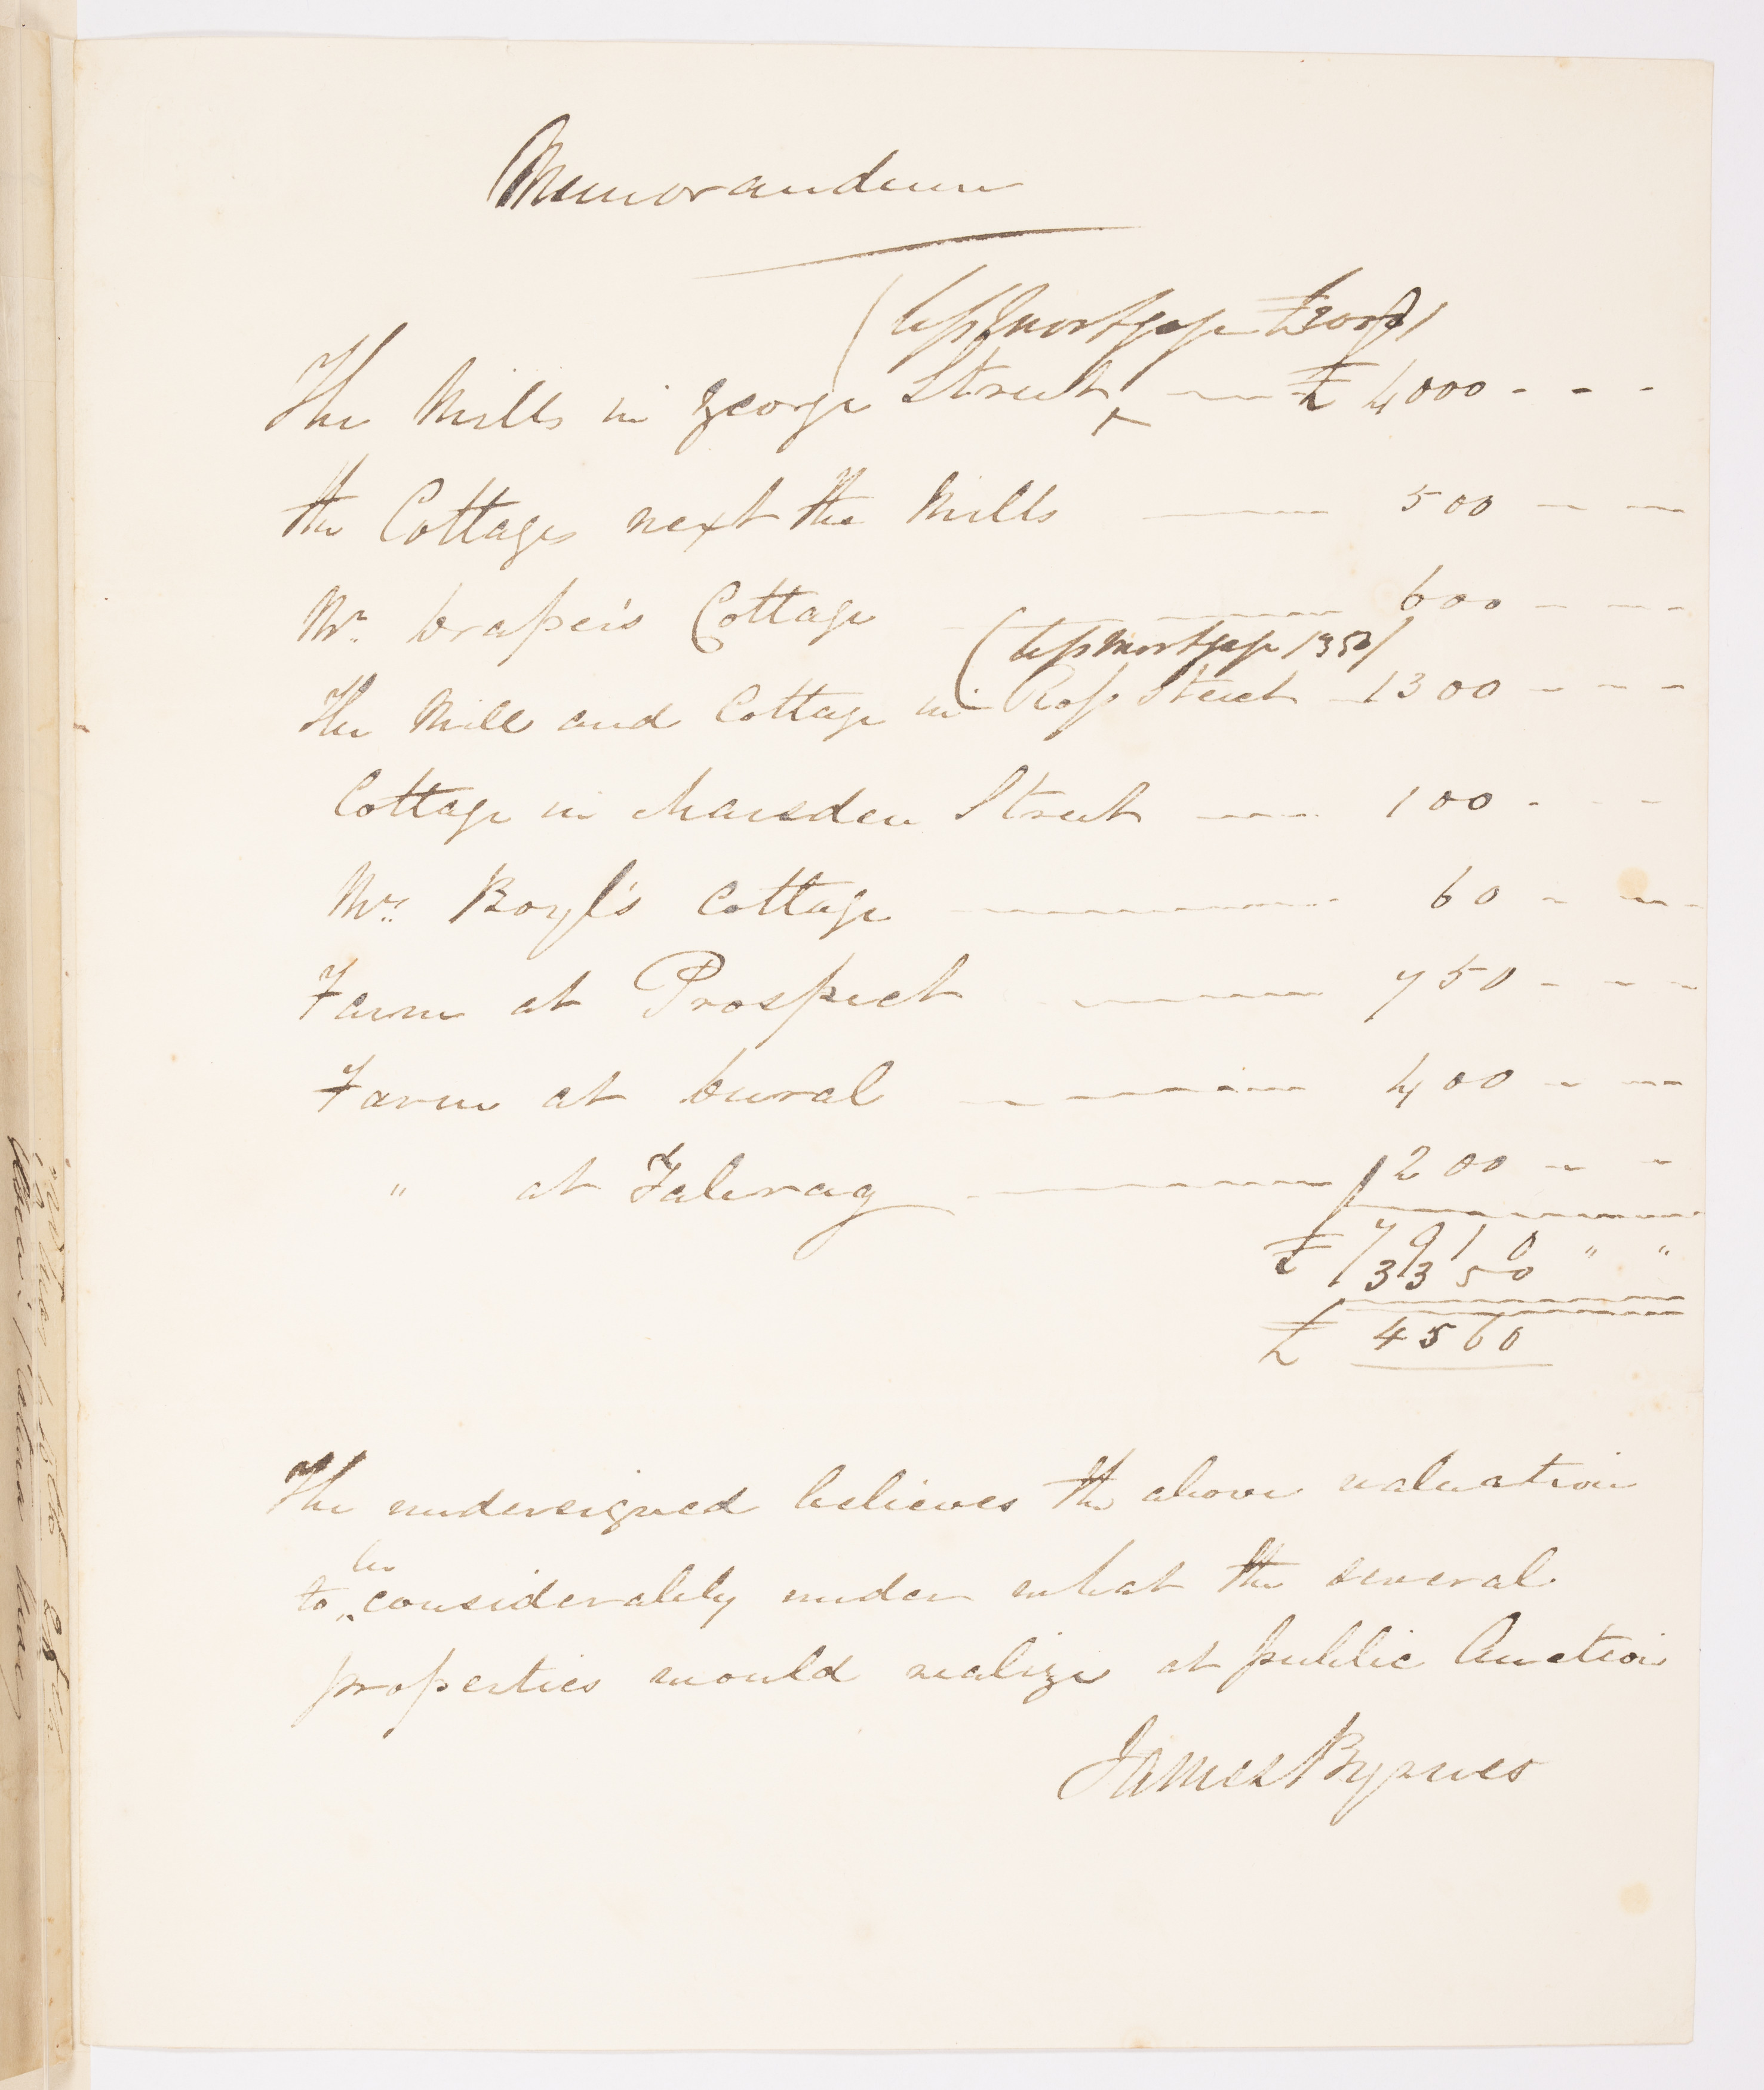 Memorandum
(less mortgage £3000)
The Mills in George Street, — £ 4000 - - -
the Cottages next the Mills — 500 - -
Mr. Draper's Cottage — 600 - - -
(less mortgage 1350)
The Mill and Cottage in Ross Street - 1300 - - -
Cottage in Marsden Street — 100 - - -
Mrs. Boyl's Cottage — 60 - - -
Farm at Prospect — 750 - - -
Farm at Dural — 400 - - -
" at — 200 - -
£ 7910 " "
3350
£ 4560
The undersigned believes the above valuation
be
to considerably under what the several
properties would realize at public Auction
James Byrnes